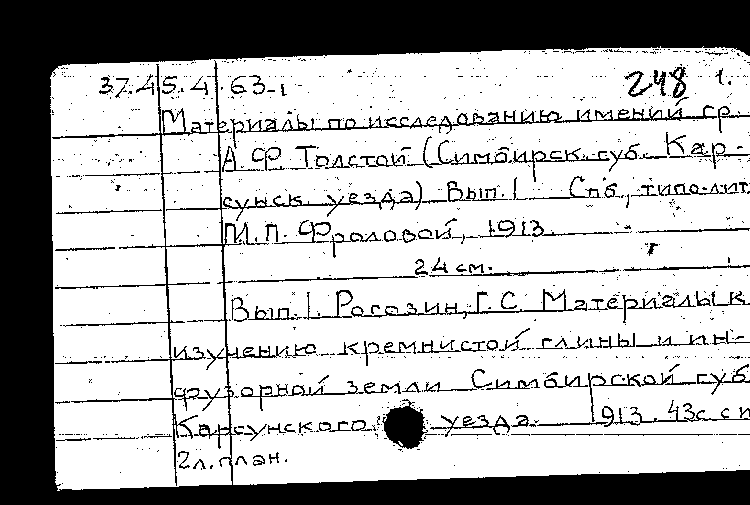 37.45.4.63-1 248 1.
Материалы по исследованию имений гр.
А.Ф. Толстой (Симбирск. губ. Кар-
сунск. уезда) Вып. 1 Спб, типо-лит
М.П. Фроловой, 1913.
24 см.
Вып. 1. Рогозин, Г.С. Материалы к
изучению кремнистой глины и ин-
фузорной земли Симбирской губ
Карсунского уезда. 1913. 43с. с п
2л. план.